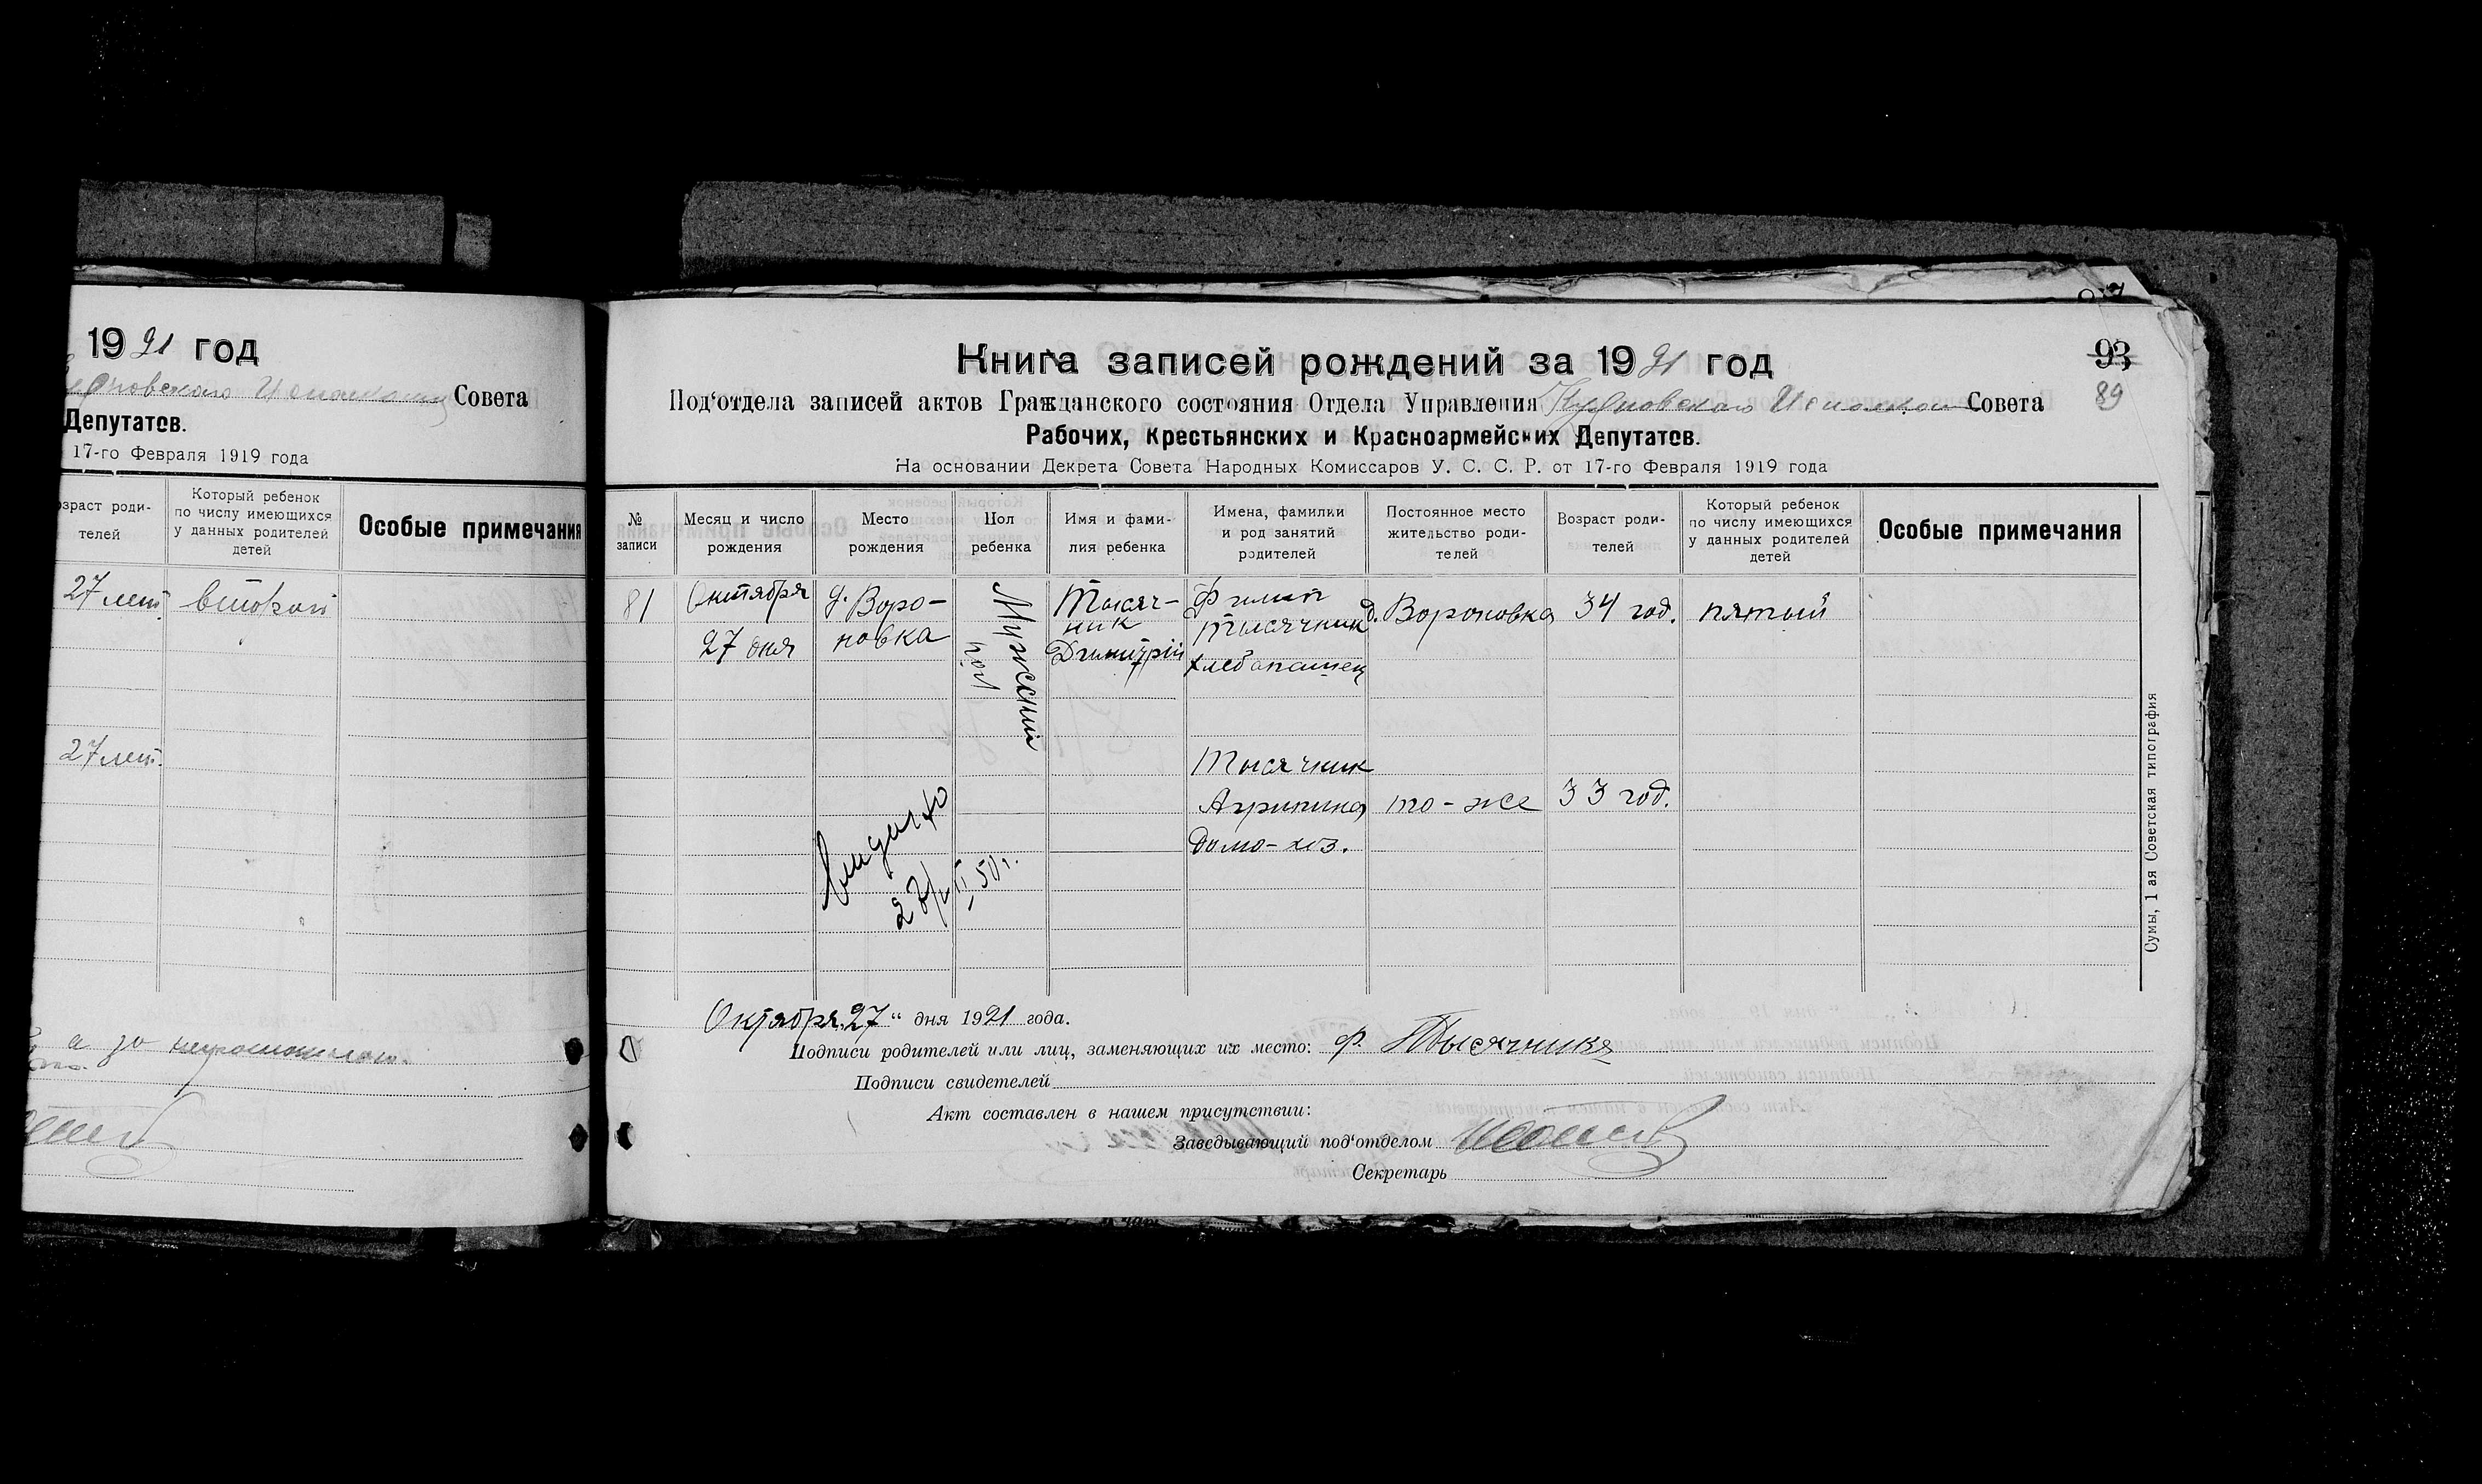 1921 год
Совета
Депутатов.
17-го Февраля 1919 года
зраст роди-
телей
Который ребенок
по числу имеющихся
у данных родителей
детей
Особые примечания
27 лет
второй
27 лет.
а за неграмотного
93
89
Книга записей рождений за 1921 год
Под‘отдела записей актов Гражданского состояния Отдела Управления Совета
Рабочих, Крестьянских и Красноармейских Депутатов.
На основании Декрета Совета Народных Комиссаров У. С. С. Р. от 17-го Февраля 1919 года
№
записи
Месяц и число
рождения
Место
рождения
Пол
ребенка
Имя и фами-
лия ребенка
Имена, фамилии
и род занятий
родителей
Постоянное место
жительство роди-
телей
Возраст роди-
телей
Который ребенок
по числу имеющихся
у данных родителей
детей
Особые примечания
81
Октября
27 дня
д. Воро-
новка
Мужский
пол
Тысяч-
ник
Димитрій
Филип
Тысячник
хлебопашец
д. Вороновка
34 год.
пятый
Тысячник
Агрипина
домо-хоз.
то-же
33 год.
Октября „27“ дня 1921 года.
Подписи родителей или лиц, заменяющих их место: Ф. Тысячника
Подписи свидетелей
Акт составлен в нашем присутствии:
Заведывающий под‘отделом
Секретарь
Сумы, 1 ая Советская типография